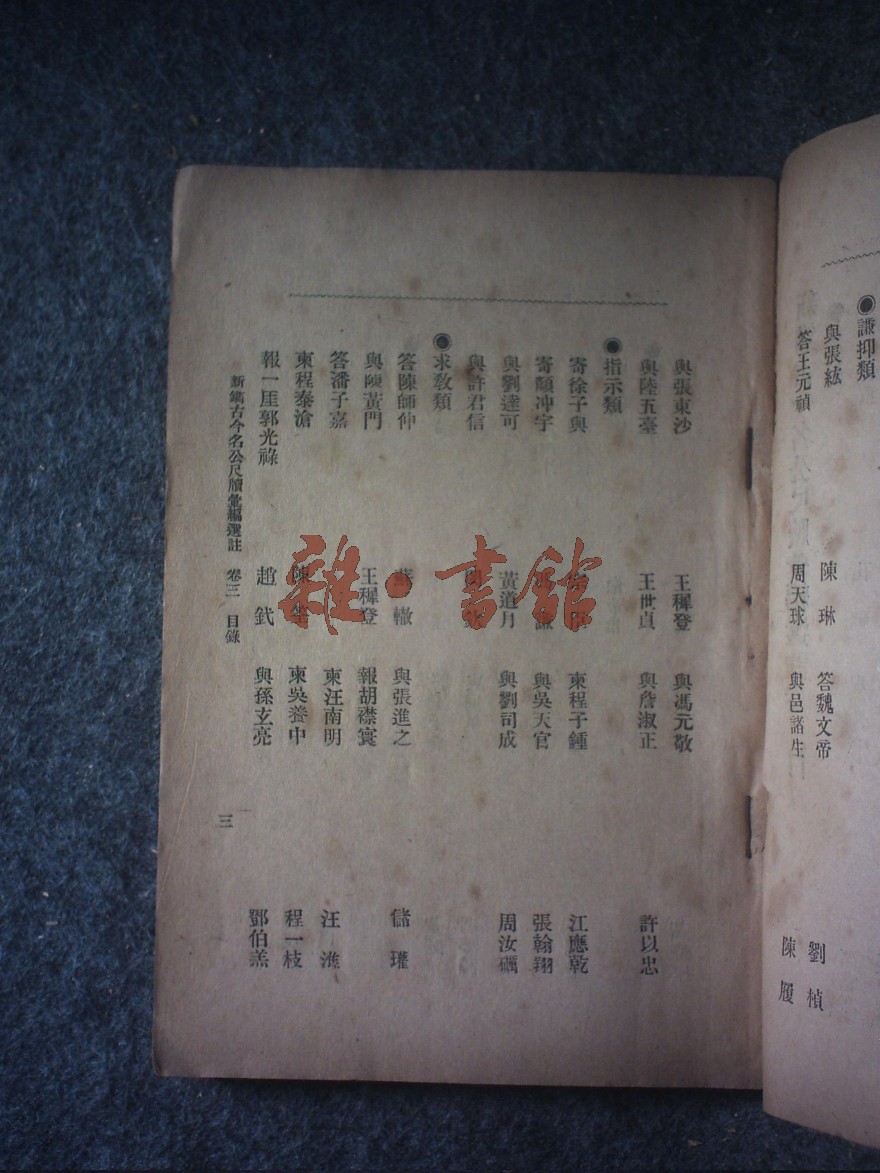 ◉謙抑類
與張紘 陳琳 答魏文帝 劉楨
答王元禎 周天球 與邑諸生 陳履
與張東沙 王穉登 與馮元敬
與陸五臺 王世貞 與詹淑正 許以忠
◉指示類
寄徐子與 東程子鍾 江應乾
寄顏冲宇 與吳天官 張翰翔
與劉達可 黃道月 與劉司成 周汝礪
與許君信
◉求教類
答陳師仲 蘇轍 與張進之 儲瓘
與陳黃門 王穉登 報胡襟寰
答潘子嘉 東汪南明 汪淮
東程泰滄 陳 東吳養中 程一枝
報一厓郭光祿 趙釴 與孫玄亮 鄧伯羔
新鐫古今名公尺牘彙編選註 卷三 目錄
三
雜·書館